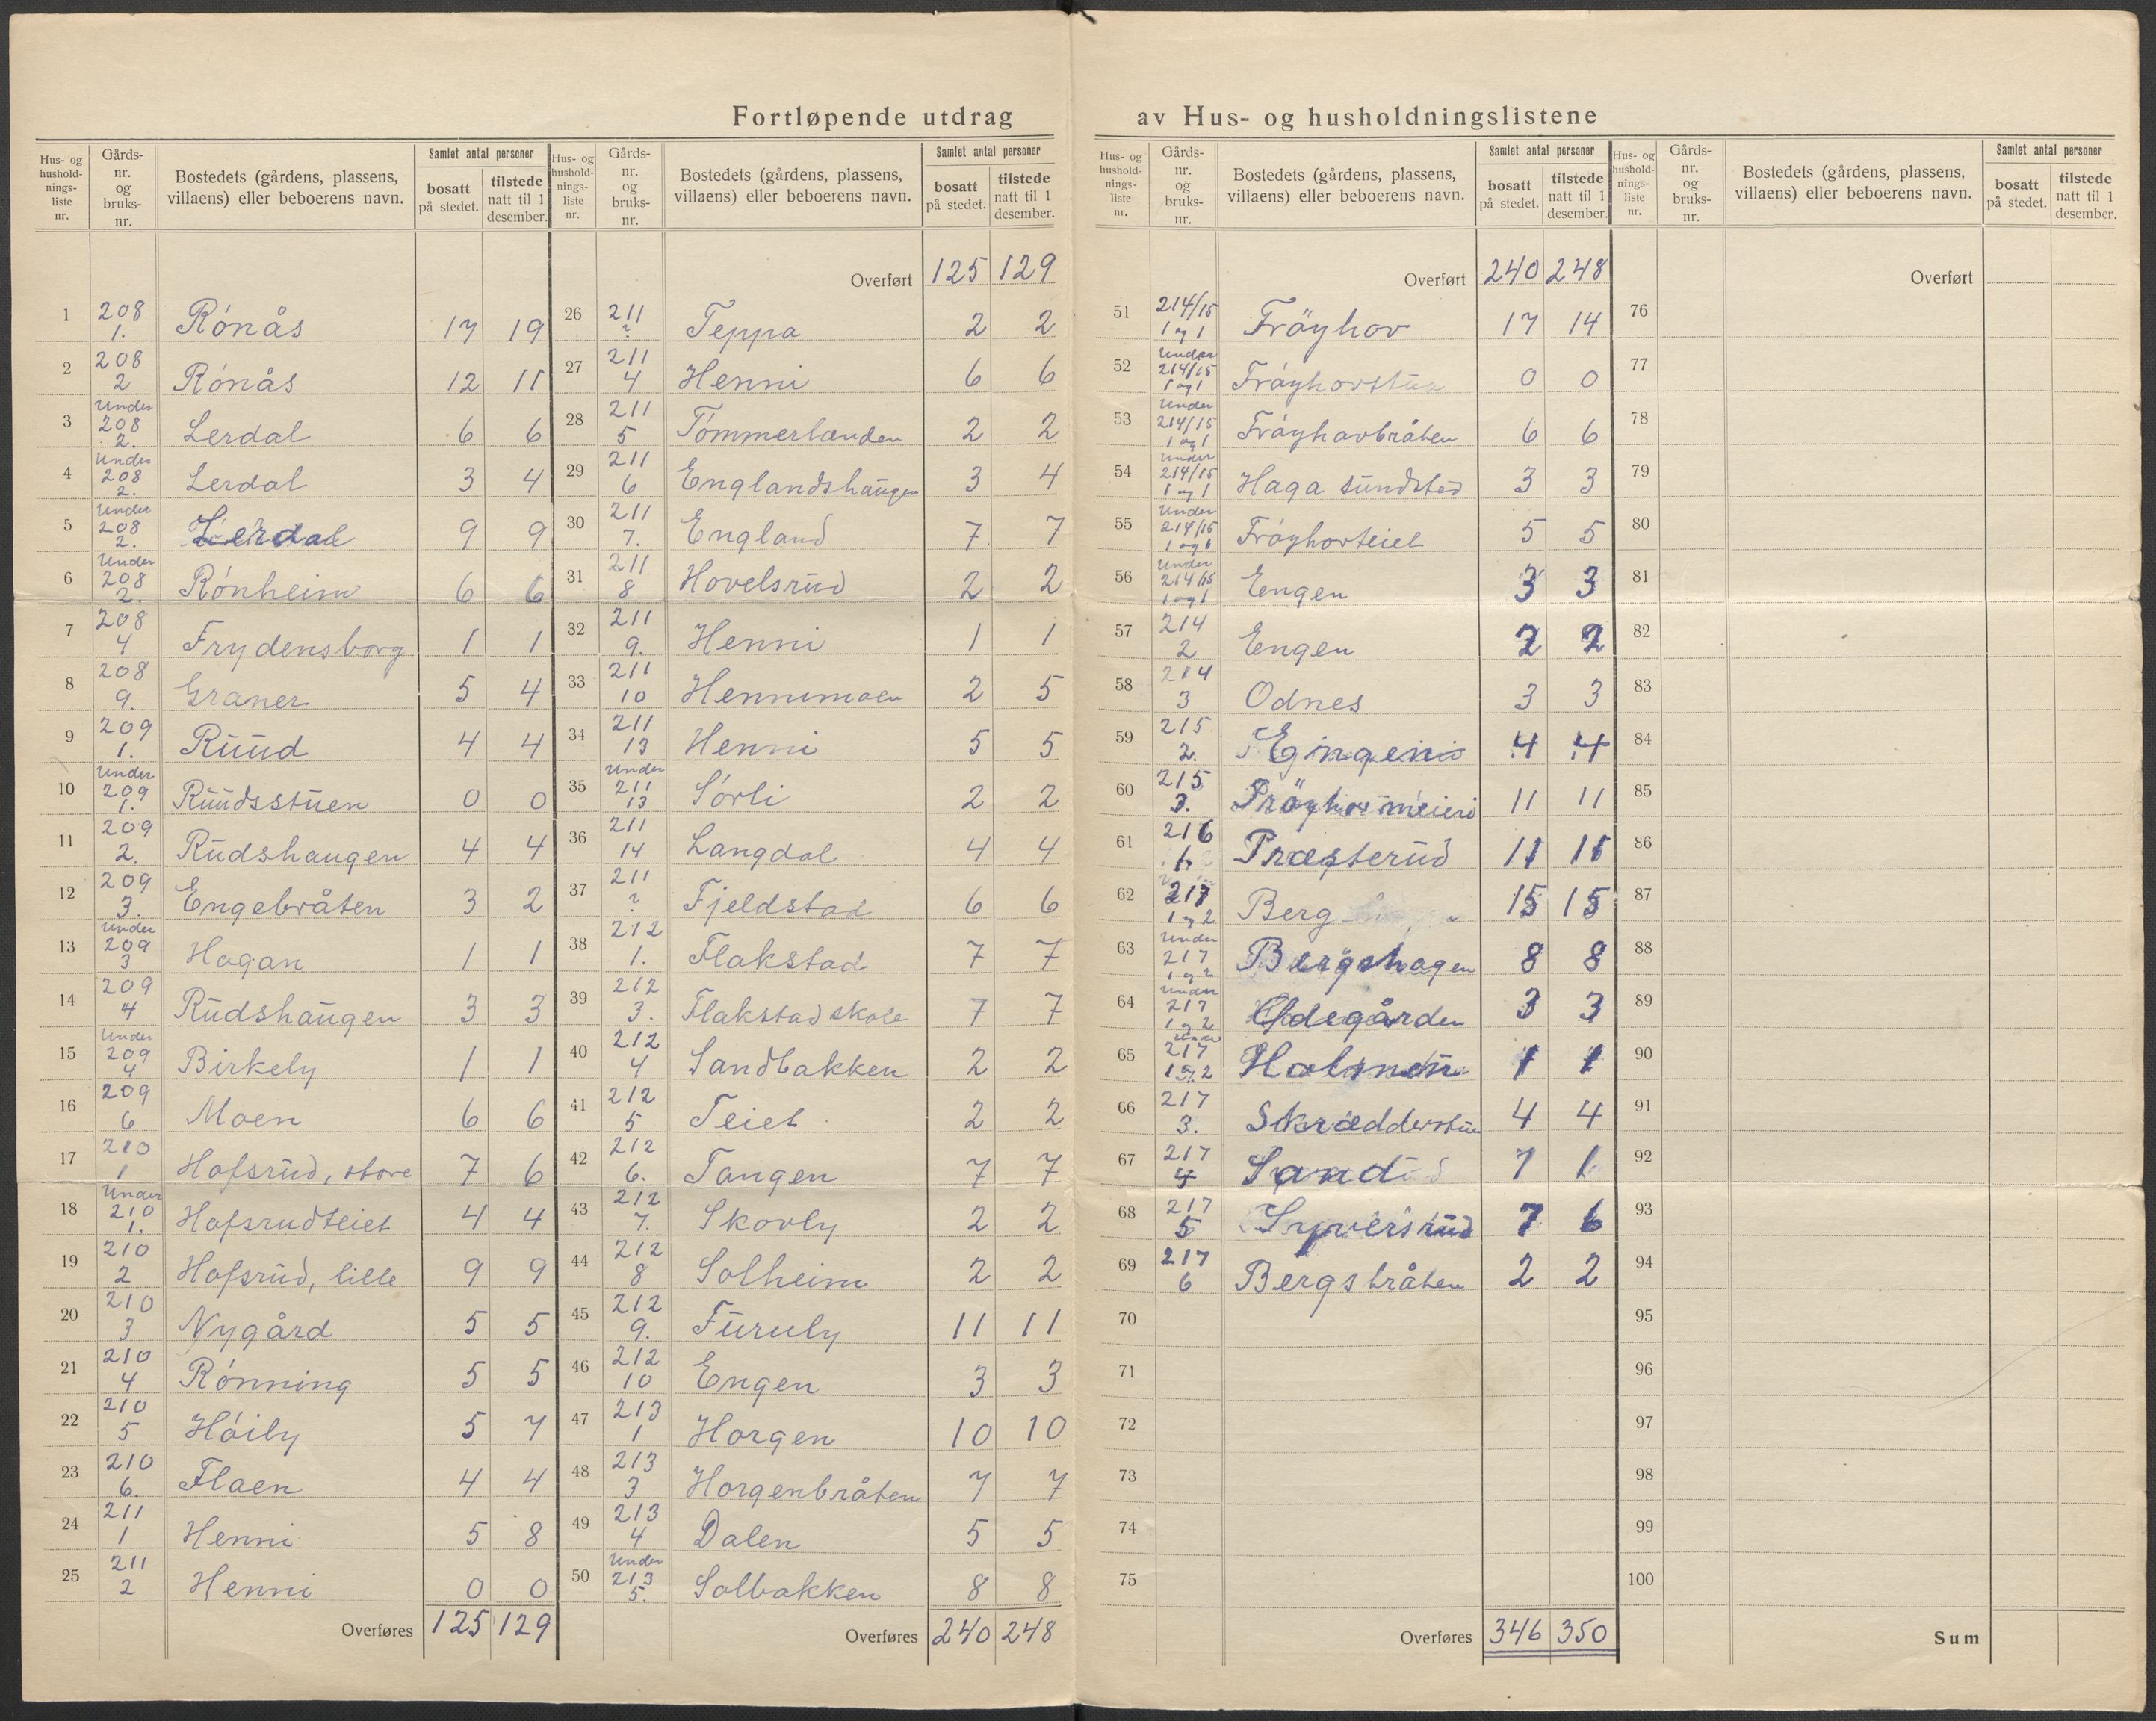 Fortløpende utdrag av Hus- og husholdningslistene
Hus- og husholdnings-liste nr. | Gårds-nr. og bruks-nr. | Bostedets (gårdens, plassens, villaens) eller beboerens navn. | Samlet antal personer | bosatt på stedet. | tilstede natt til 1 desember.
1 208 1. Rónås 17 19
2 208 2 Rónås 12 11
3 Under 208 2. Lerdal 6 6
4 Under 208 2. Lerdal 3 4
5 Under 208 2. Lerdal 9 9
6 Under 208 2. Rónheim 6 6
7 208 4 Frydensborg 1 1
8 208 9. Graner 5 4
9 209 1. Ruud 4 4
10 Under 209 1. Ruudsstuen 0 0
11 209 2. Rudshaugen 4 4
12 209 3. Engebråten 3 2
13 Under 209 3 Hagan 1 1
14 209 4 Rudshaugen 3 3
15 Under 209 4 Birkely 1 1
16 209 6 Moen 6 6
17 210 1 Hofsrud, store 7 6
18 Under 210 1. Hofsrudteiet 4 4
19 210 2 Hofsrud, lille 9 9
20 210 3 Nygård 5 5
21 210 4 Rónning 5 5
22 210 5 Hóily 5 7
23 210 6. Flaen 4 4
24 211 1 Henni 5 8
25 211 2 Henni 0 0
Overføres 125 129
Hus- og husholdnings-liste nr. | Gårds-nr. og bruks-nr. | Bostedets (gårdens, plassens, villaens) eller beboerens navn. | Samlet antal personer | bosatt på stedet. | tilstede natt til 1 desember.
Overført 125 129
26 211 ? Teppa 2 2
27 211 4 Henni 6 6
28 211 5 Tómmerlanden 2 2
29 211 6 Englandshaugen 3 4
30 211 7. England 7 7
31 211 8 Hovelsrud 2 2
32 211 9. Henni 1 1
33 211 10 Hennimoen 2 5
34 211 13 Henni 5 5
35 Under 211 13 Sórli 2 2
36 211 14 Langdal 4 4
37 211 ? Fjeldstad 6 6
38 212 1. Flakstad 7 7
39 212 3. Flakstad skole 7 7
40 212 4 Sandbakken 2 2
41 212 5 Teiet 2 2
42 212 6. Tangen 7 7
43 212 7. Skovly 2 2
44 212 8 Solheim 2 2
45 212 9. Furuly 11 11
46 212 10 Engen 3 3
47 213 1 Horgen 10 10
48 213 3 Horgenbråten 7 7
49 213 4 Dalen 5 5
50 Under 213 5. Solbakken 8 8
Overføres 240 248
Hus- og husholdnings-liste nr. | Gårds-nr. og bruks-nr. | Bostedets (gårdens, plassens, villaens) eller beboerens navn. | Samlet antal personer | bosatt på stedet. | tilstede natt til 1 desember.
Overført 240 248
51 214/15 1 og 1 Fröyhov 17 14
52 Under 214/15 1 og 1 Fróyhovstua 0 0
53 Under 214/15 1 og 1 Fróyhovbråten 6 6
54 Under 214/15 1 og 1 Haga sundsted 3 3
55 Under 214/15 1 og 1 Fróyhovteiet 5 5
56 Under 214/15 1 og 1 Engen 3 3
57 214 2 Engen 2 2
58 214 3 Odnes 3 3
59 215 2. 4 4
60 215 3. Fröyhovmeieri 11 11
61 216 1. Præsterud 11 11
62 217 1 og 2 Berg 15 15
63 Under 217 1 og 2 Bergshagen 8 8
64 Under 217 1 og 2 Ødegården 3 3
65 Under 217 1 og 2 1 1
66 217 3. Skrædderstua 4 4
67 217 4 Sand 1 1
68 217 5 Syversrud 7 6
69 217 6 Bergsbråten 2 2
70
71
72
73
74
75
Overføres 346 350
Hus- og husholdnings-liste nr. | Gårds-nr. og bruks-nr. | Bostedets (gårdens, plassens, villaens) eller beboerens navn. | Samlet antal personer | bosatt på stedet. | tilstede natt til 1 desember.
Overført
76
77
78
79
80
81
82
83
84
85
86
87
88
89
90
91
92
93
94
95
96
97
98
99
100
Sum